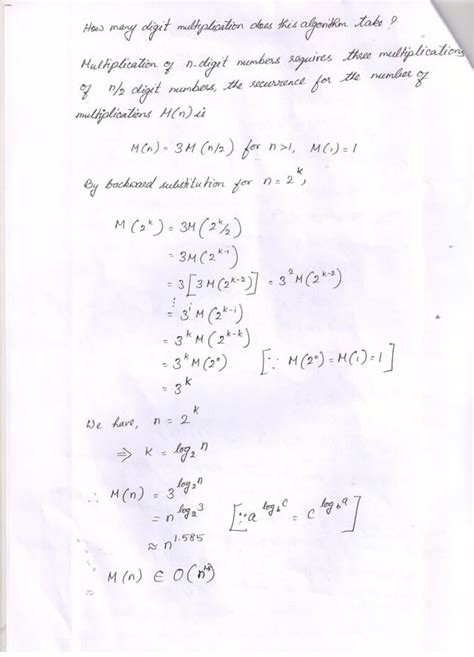 How many digit multiplication does this algorithm take?
Multiplication of n-digit numbers requires three multiplications
of n/2 digit numbers, the recurrence for the number of
multiplications M(n) is
M(n) = 3M(n/2) for n>1, M(1)=1
By backward substitution for n = 2^k,
M(2^k) = 3M(2^k/2)
= 3M(2^(k-1))
= 3[3M(2^(k-2))] = 3^2 M(2^(k-2))
⋮
= 3^i M(2^(k-i))
= 3^k M(2^(k-k))
= 3^k M(2^0) [∵ M(2^0) = M(1) = 1]
= 3^k
We have, n = 2^k
⇒ k = log_2 n
∴ M(n) = 3^(log_2 n)
= n^(log_2 3) [∵ a^(log_b c) = c^(log_b a)]
≈ n^1.585
M(n) ∈ O(n